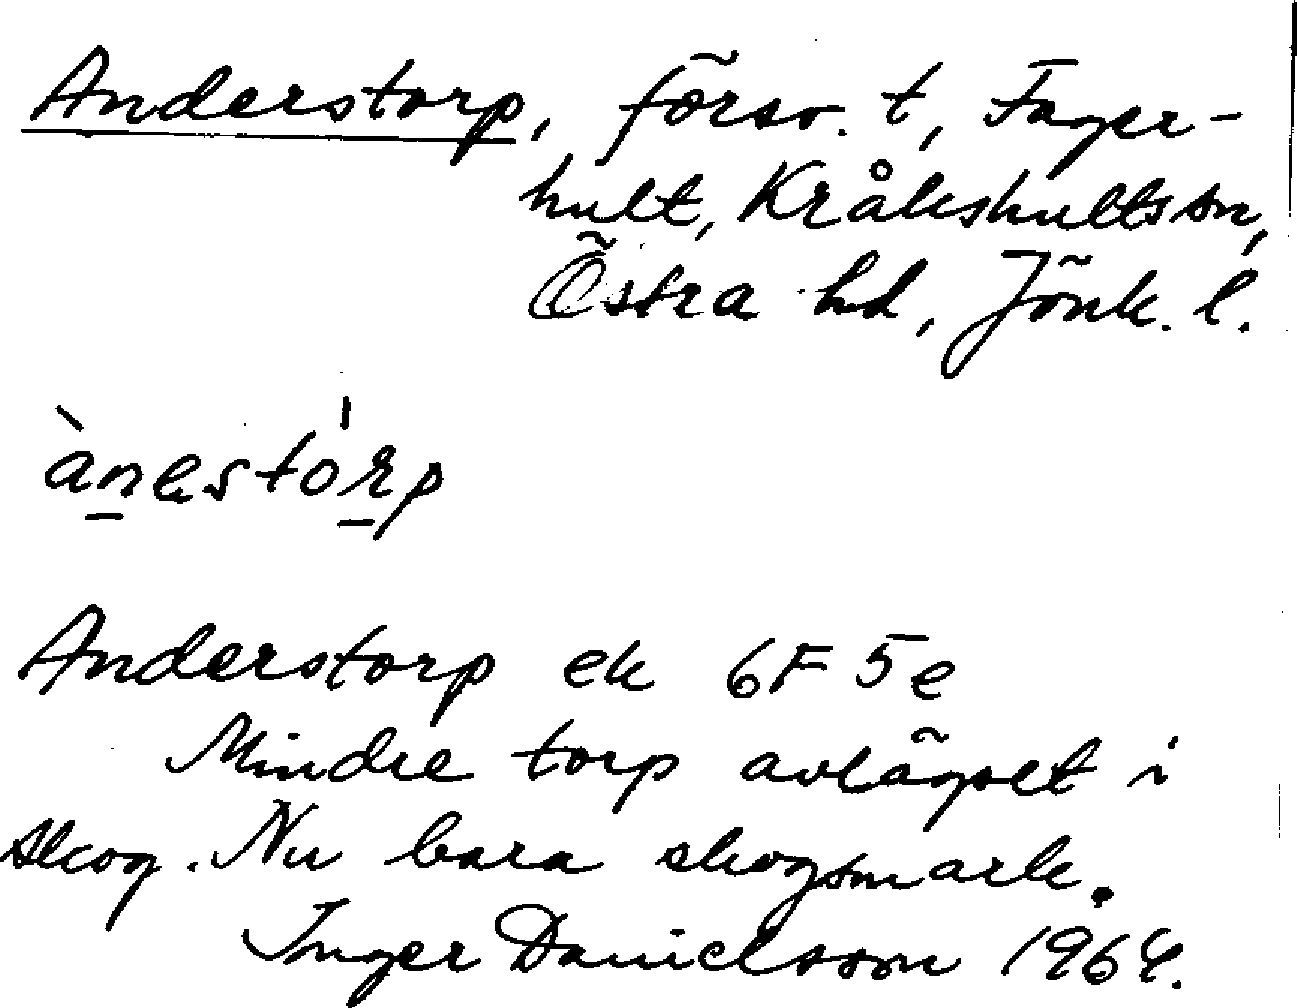 Anderstorp, försv. t, Fager-
hult, Kråkshults sn,
Östra hd, Jönk. l.
ànestórp
Anderstorp ek 6F 5e
Mindre torp avlägset i
skog. Nu bara skogsmark.
Inger Danielsson 1964.